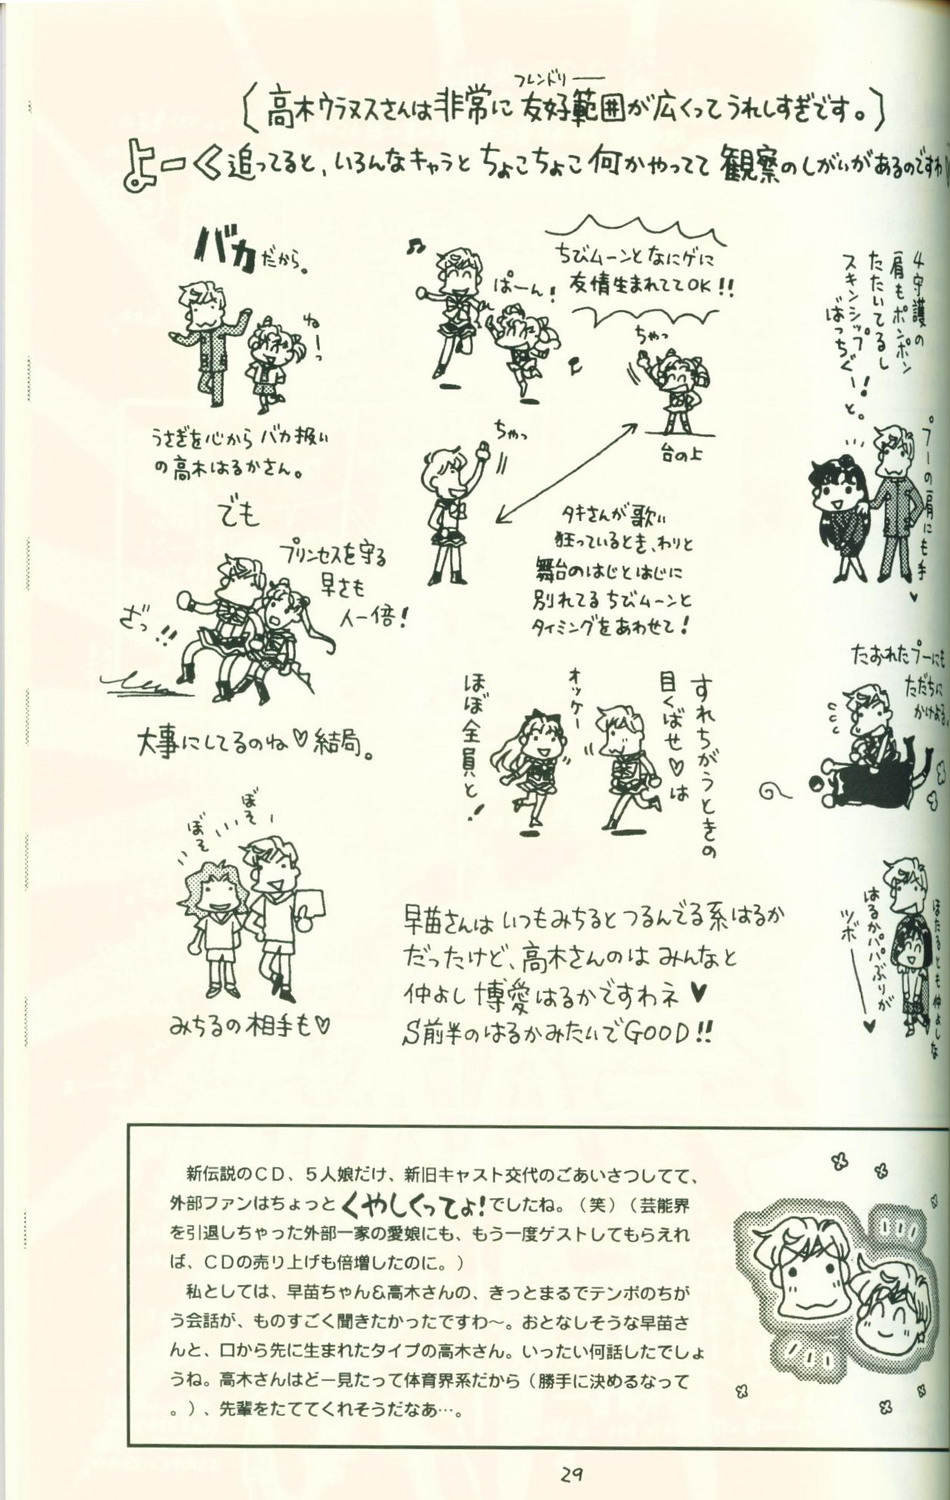 フレンドリー
(高木ウラヌスさんは非常に友好範囲が広くってうれしすぎです。)
よーく追ってると、いろんなキャラとちょこちょこ何かやってて観察のしがいがあるのですわ
バカだから。
ねーっ
うさぎを心からバカ扱い
の高木はるかさん。
でも
プリンセスを守る
早さも
人一倍!
ざっ!!
大事にしてるのね♡結局。
ぼそ
ぼそ
みちるの相手も♡
♫
ぱーん!
ちびムーンとなにゲに
友情生まれててOK!!
ちゃっ
台の上
ちゃっ
タキさんが歌い
狂っているとき、わりと
舞台のはじとはじに
別れてるちびムーンと
タイミングをあわせて!
すれちがうときの
目くばせ♡は
オッケー
ほぼ全員と!
4守護の
肩もポンポン
たたいてるし
スキンシップ
ばっちぐー!
と。
プーの肩にも手♥
たおれたプーにも
ただちに
かけよる
ほたるとも仲よしな
はるかパパぶりが
ツボ―♥
早苗さんはいつもみちるとつるんでる系はるか
だったけど、高木さんのはみんなと
仲よし博愛はるかですわネ♥
S前半のはるかみたいでGOOD!!
新伝説のCD、5人娘だけ、新旧キャスト交代のごあいさつしてて、
外部ファンはちょっとくやしくってょ!でしたね。(笑)(芸能界
を引退しちゃった外部一家の愛娘にも、もう一度ゲストしてもらえれ
ば、CDの売り上げも倍増したのに。)
私としては、早苗ちゃん&高木さんの、きっとまるでテンポのちが
う会話が、ものすごく聞きたかったですわ~。おとなしそうな早苗さ
んと、口から先に生まれたタイプの高木さん。いったい何話したでしょ
うね。高木さんはどー見たって体育界系だから(勝手に決めるなって
。)、先輩をたててくれそうだなあ…。
29